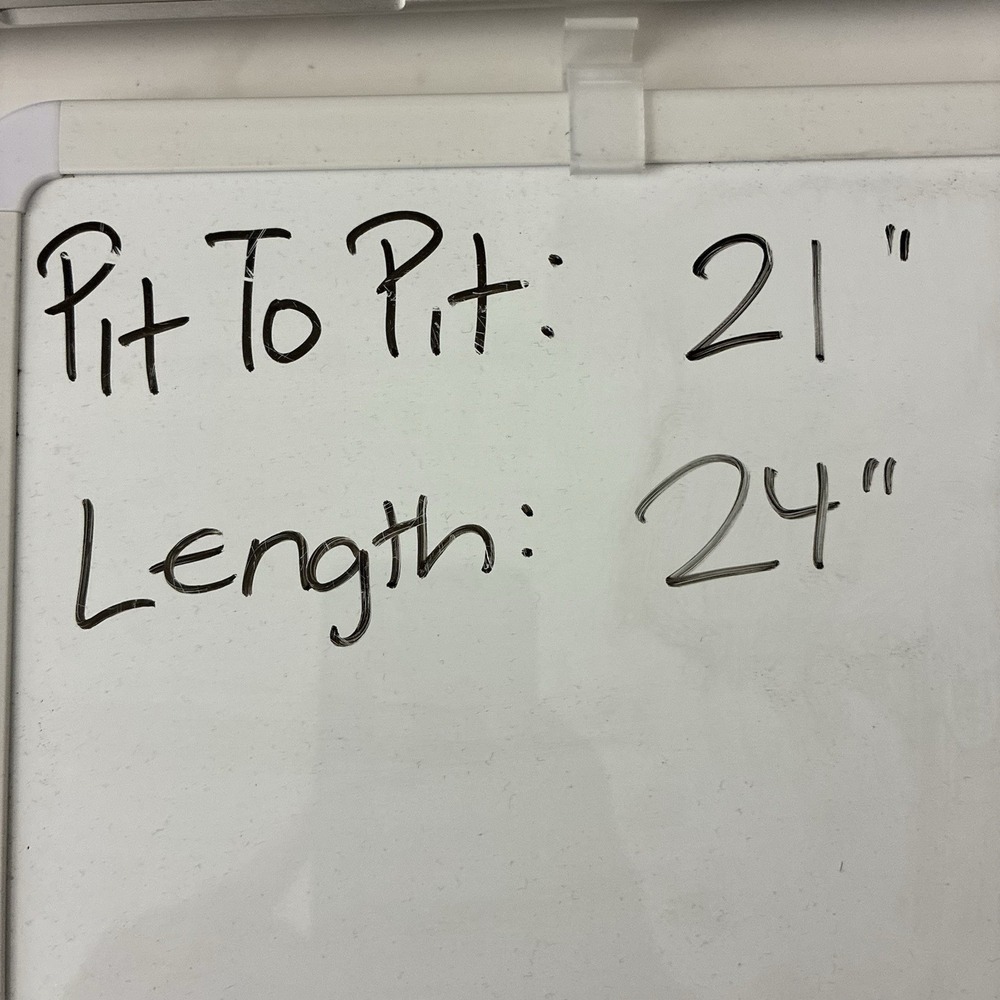 Pit To Pit: 21"
Length: 24"